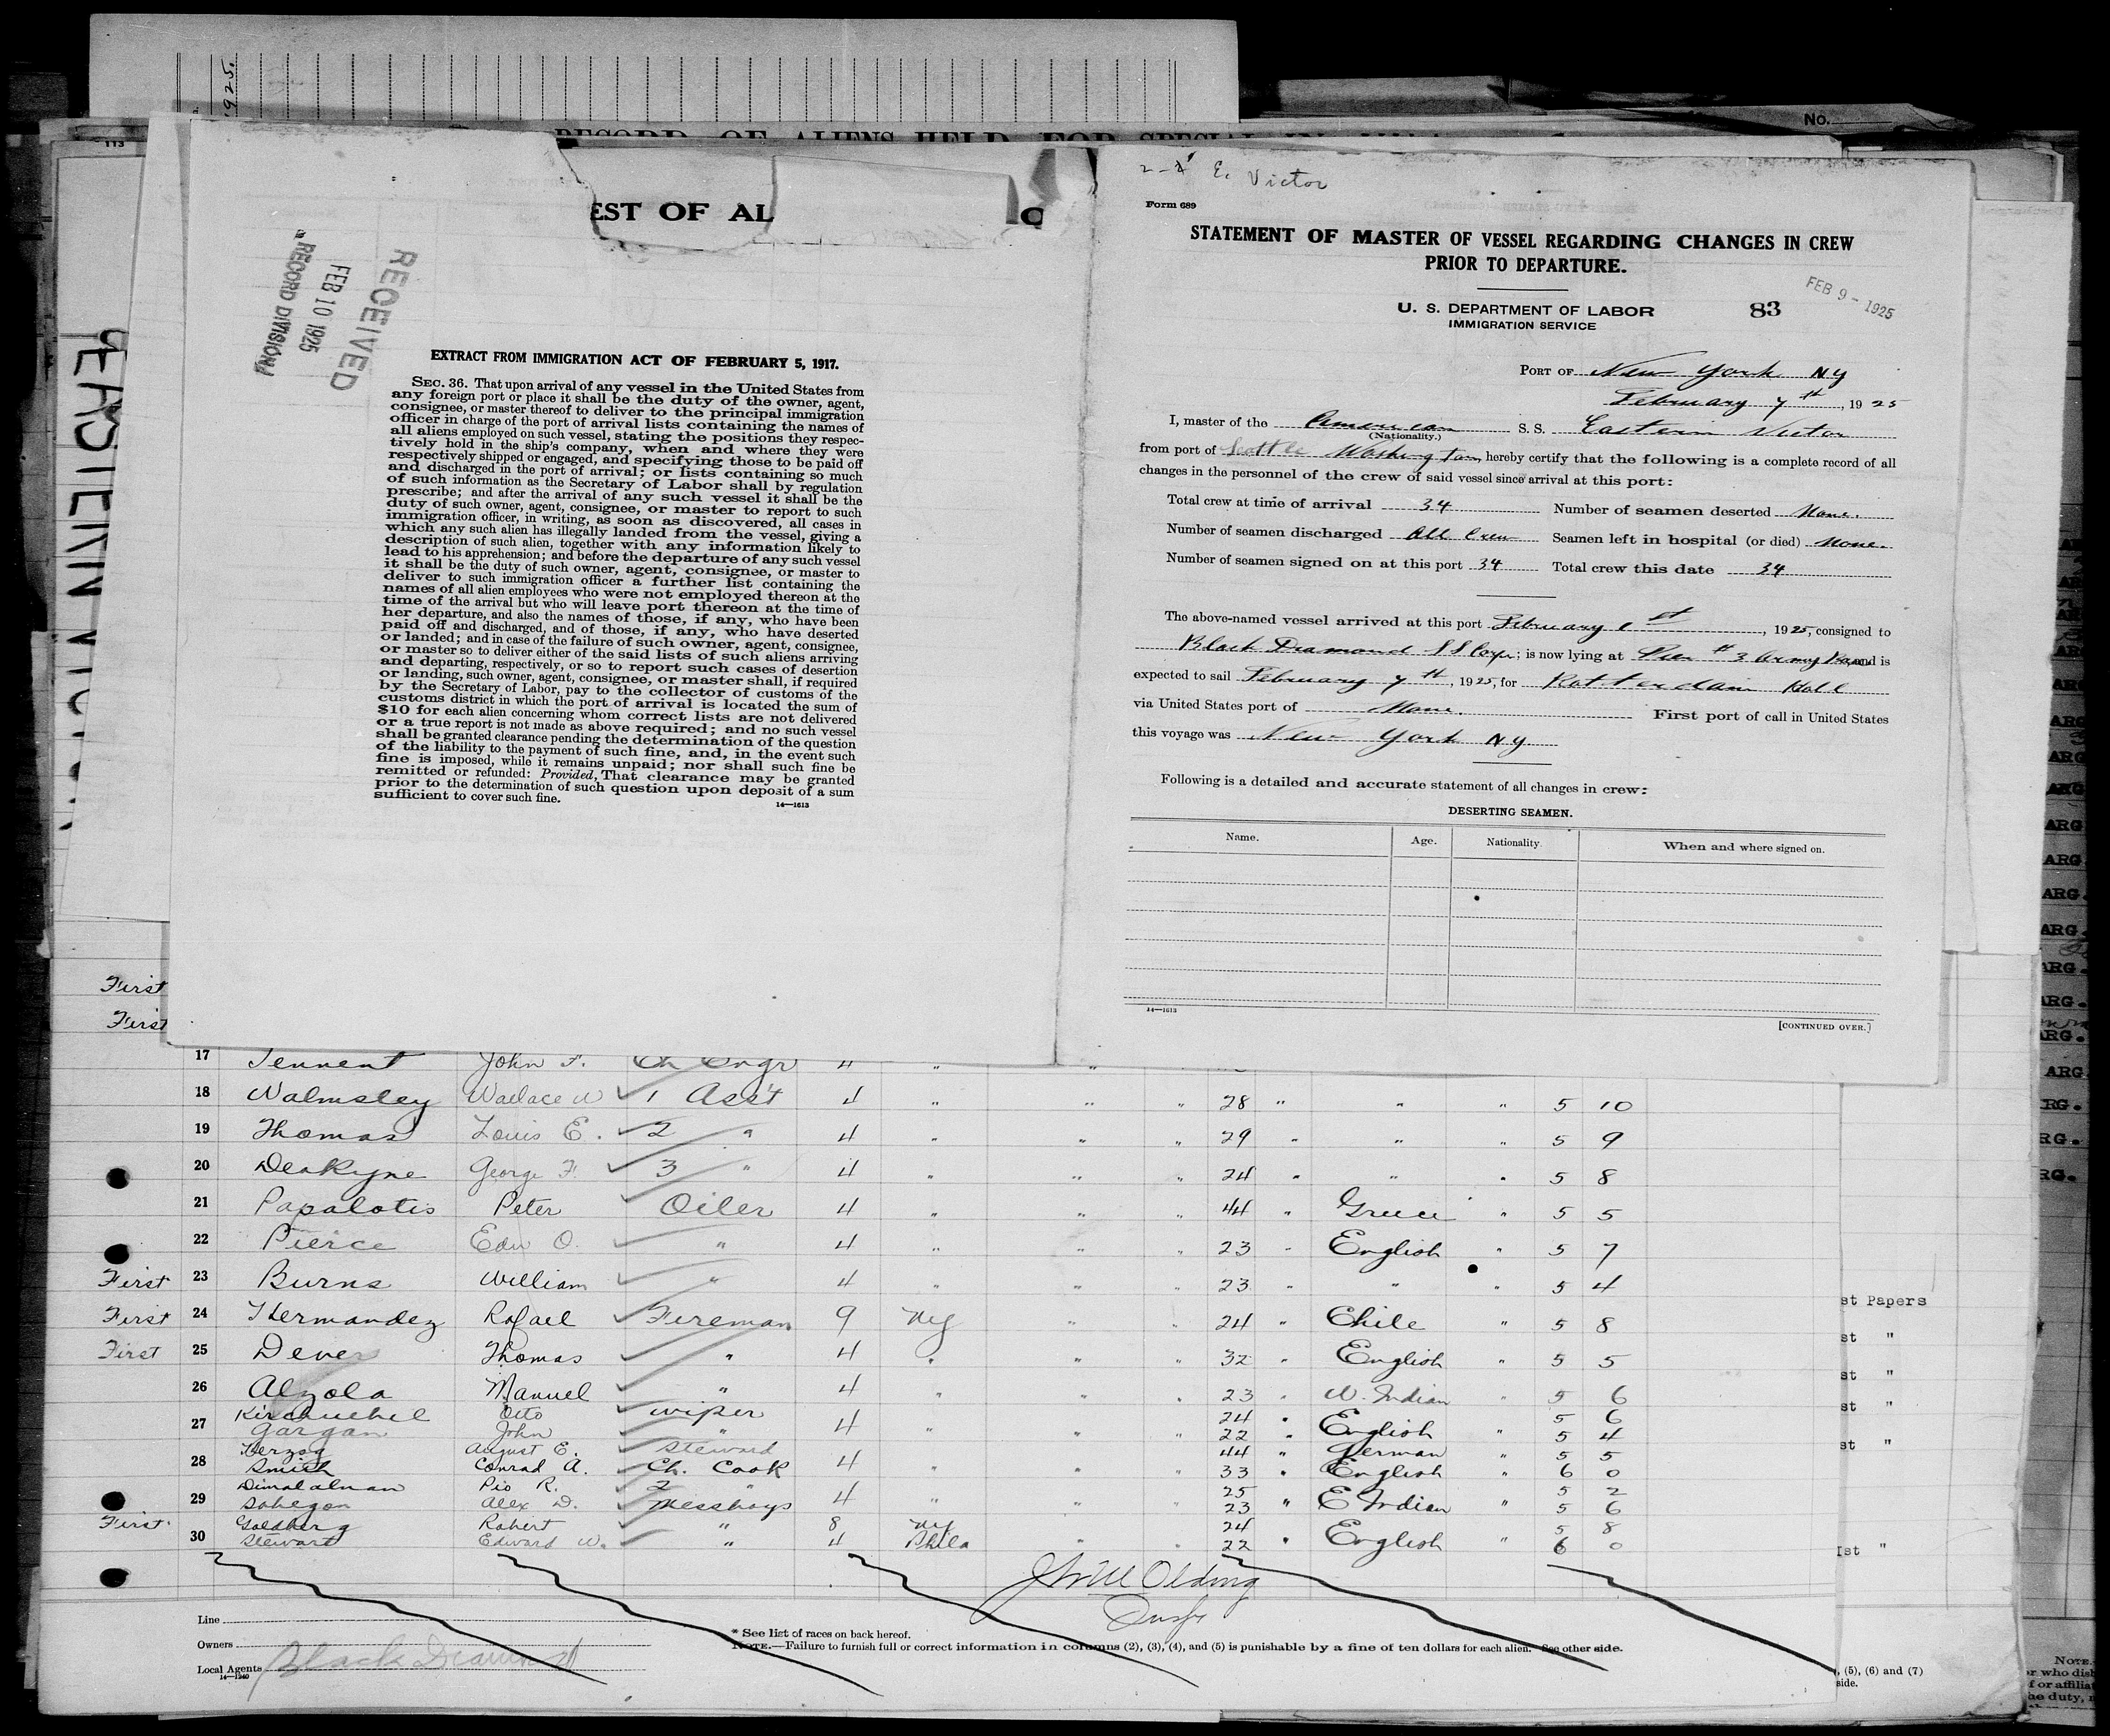 1925.
RECORD OF ALIENS HELD FOR SPECIAL IN
No.
113
EASTERN VICTOR
EST OF AL
RECEIVED
FEB 10 1925
RECORD DIVISION
EXTRACT FROM IMMIGRATION ACT OF FEBRUARY 5, 1917.
SEC. 36. That upon arrival of any vessel in the United States from
any foreign port or place it shall be the duty of the owner, agent,
consignee, or master thereof to deliver to the principal immigration
officer in charge of the port of arrival lists containing the names of
all aliens employed on such vessel, stating the positions they respec-
tively hold in the ship's company, when and where they were
respectively shipped or engaged, and specifying those to be paid off
and discharged in the port of arrival; or lists containing so much
of such information as the Secretary of Labor shall by regulation
prescribe; and after the arrival of any such vessel it shall be the
duty of such owner, agent, consignee, or master to report to such
immigration officer, in writing, as soon as discovered, all cases in
which any such alien has illegally landed from the vessel, giving a
description of such alien, together with any information likely to
lead to his apprehension; and before the departure of any such vessel
it shall be the duty of such owner, agent, consignee, or master to
deliver to such immigration officer a further list containing the
names of all alien employees who were not employed thereon at the
time of the arrival but who will leave port thereon at the time of
her departure, and also the names of those, if any, who have been
paid off and discharged, and of those, if any, who have deserted
or landed; and in case of the failure of such owner, agent, consignee,
or master so to deliver either of the said lists of such aliens arriving
and departing, respectively, or so to report such cases of desertion
or landing, such owner, agent, consignee, or master shall, if required
by the Secretary of Labor, pay to the collector of customs of the
customs district in which the port of arrival is located the sum of
$10 for each alien concerning whom correct lists are not delivered
or a true report is not made as above required; and no such vessel
shall be granted clearance pending the determination of the question
of the liability to the payment of such fine, and, in the event such
fine is imposed, while it remains unpaid; nor shall such fine be
remitted or refunded: Provided, That clearance may be granted
prior to the determination of such question upon deposit of a sum
sufficient to cover such fine.
14—1613
E. Victor
Form 689
STATEMENT OF MASTER OF VESSEL REGARDING CHANGES IN CREW
PRIOR TO DEPARTURE.
U. S. DEPARTMENT OF LABOR
IMMIGRATION SERVICE
83
FEB 9 - 1925
PORT OF New York NY
February 7th, 1925
I, master of the American S. S. Eastern Victor
(Nationality.)
from port of Seattle Washington, hereby certify that the following is a complete record of all
changes in the personnel of the crew of said vessel since arrival at this port:
Total crew at time of arrival 34 Number of seamen deserted None.
Number of seamen discharged All Crew Seamen left in hospital (or died) None.
Number of seamen signed on at this port 34 Total crew this date 34
The above-named vessel arrived at this port February 1st, 1925, consigned to
Black Diamond SS Corp; is now lying at Pier #3 Army Base and is
expected to sail February 7th, 1925, for Rotterdam Holl
via United States port of None. First port of call in United States
this voyage was New York NY
Following is a detailed and accurate statement of all changes in crew:
DESERTING SEAMEN.
Name. Age. Nationality. When and where signed on.
14—1613
[CONTINUED OVER.]
First
First
17 Tennent John F. Ch Engr 4 " "
18 Walmsley Wallace W 1 Ass't 4 " " " 28 " " " 5 10
19 Thomas Louis E. 2 " 4 " " " 29 " " " 5 9
20 Deakyne George F. 3 " 4 " " " 24 " " " 5 8
21 Papalotis Peter Oiler 4 " " " 44 " Greece " 5 5
22 Pierce Edw O. " 4 " " " 23 " English " 5 7
First 23 Burns William " 4 " " " 23 " " " 5 4
First 24 Hermandez Rafael Fireman 9 Ny " " 24 " Chile " 5 8
First 25 Dever Thomas " 4 " " " 32 " English " 5 5
26 Alzola Manuel " 4 " " " 23 " W. Indian " 5 6
Kirchuebel Otto Wiper 24 " 5 6
27 Gargan John " 4 " " " 22 " English " 5 4
Herzog August E. Steward 44 " German " 5 5
28 Smith Conrad A. Ch. Cook 4 " " " 33 " English " 6 0
Dimalalman Pio R. 2 " 25 5 2
29 Sohegon Alex D. Messboys 4 " " " 23 " E Indian " 5 6
First Goldberg Robert " 8 Ny 24 5 8
30 Stewart Edward W. " 4 Phila " " 22 " English " 6 0
st Papers
st "
st "
st "
st "
1st "
Line
Owners
Local Agents Black Diamond
14—1240
* See list of races on back hereof.
NOTE.—Failure to furnish full or correct information in columns (2), (3), (4), and (5) is punishable by a fine of ten dollars for each alien. See other side.
, (5), (6) and (7)
side.
NOTE.
r who dis
f or affilia
he duty,
ARG.
ARG.
ARG.
ARG.
ARG.
ARG.
ARG.
ARG.